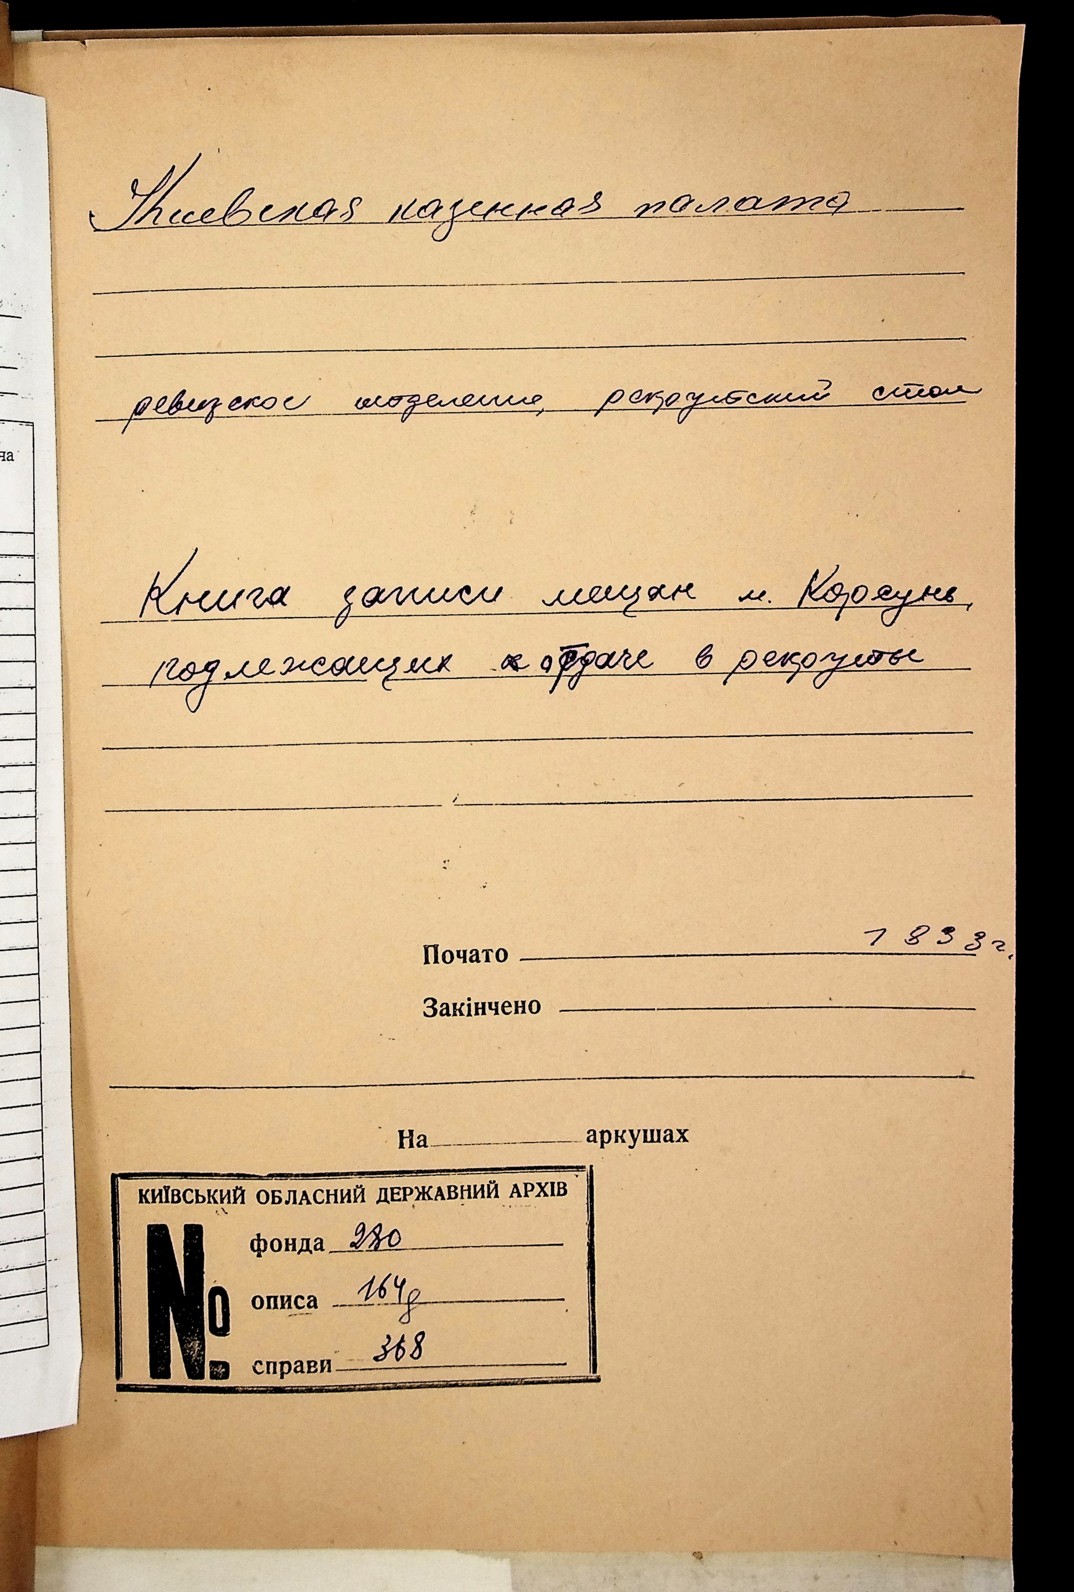 Киевская казенная палата
ревизское отделение, рекрутский стол
ча
Книга записи мещан м. Корсунь,
подлежащих к отдаче в рекруты
Почато 1833 г.
Закінчено
На аркушах
КИЇВСЬКИЙ ОБЛАСНИЙ ДЕРЖАВНИЙ АРХІВ
№ фонда 280
описа 164д
справи 368